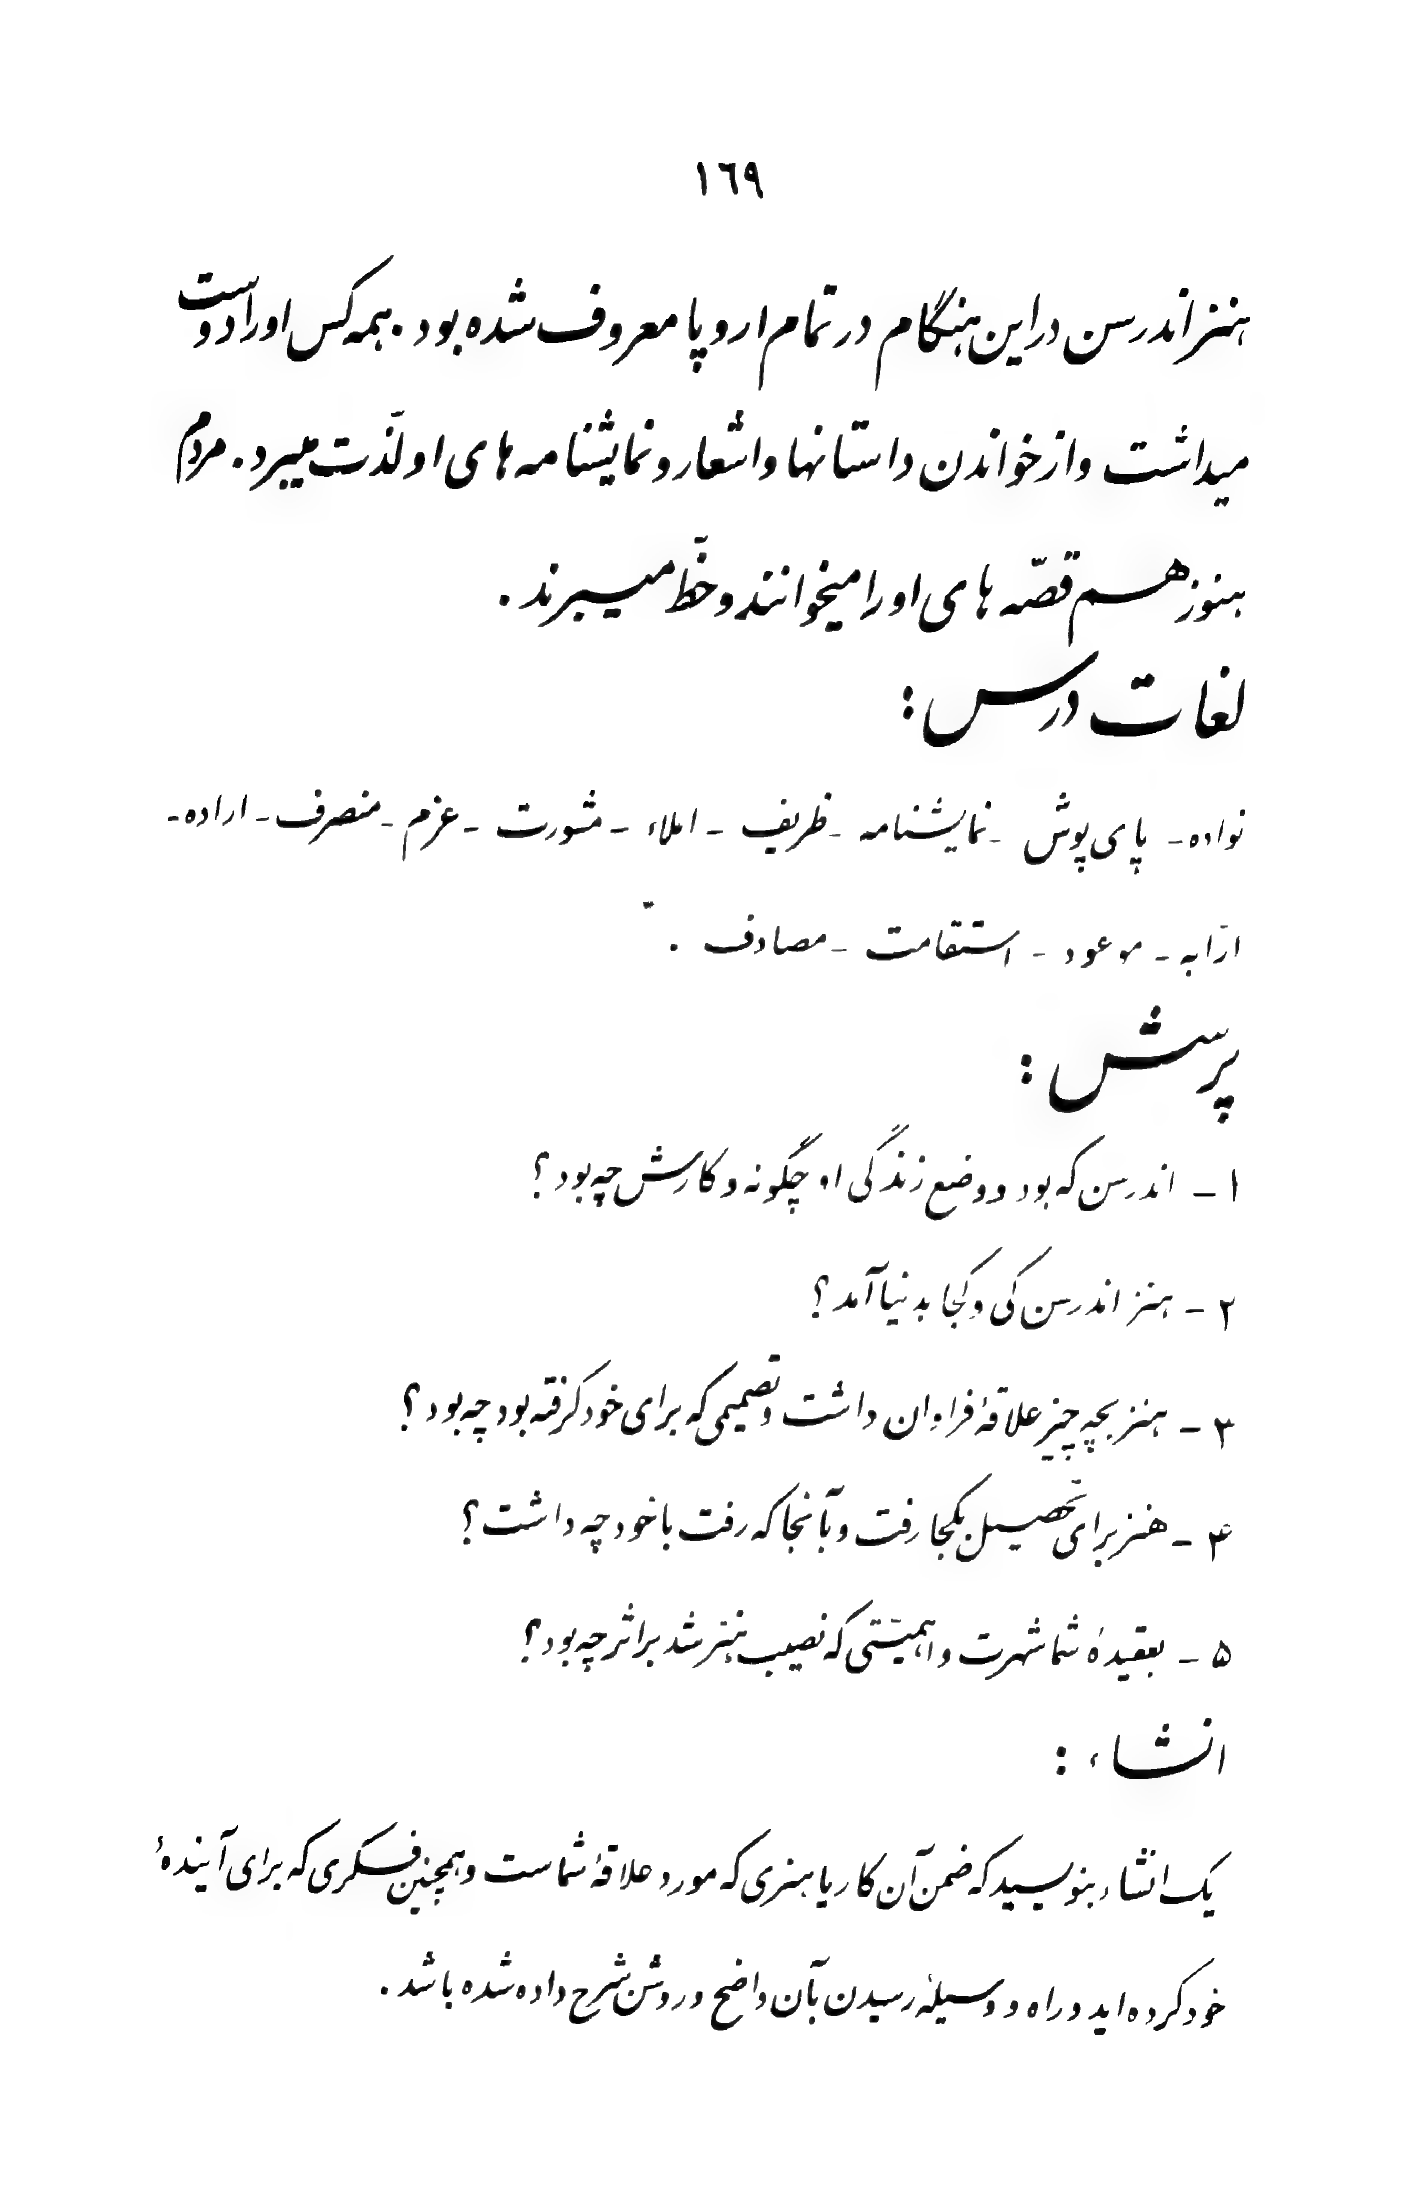 ١٦٩
هنز اندرسن در این هنگام در تمام اروپا معروف شده بود . همه کس او را دوست
میداشت و از خواندن داستانها و اشعار و نمایشنامه های او لذّت میبرد . مردم
هنوز هم قصّه های او را میخوانند و حظّ میبرند .
لغات درس :
نواده - پای پوش - نمایشنامه - ظریف - املاء - مشورت - عزم - منصرف - اراده -
ارّابه - موعود - استقامت - مصادف .
پرسش :
۱ - اندرسن که بود و وضع زندگی او چگونه و کارش چه بود ؟
۲ - هنز اندرسن کی و کجا بدنیا آمد ؟
۳ - هنز بچه چیز علاقهٔ فراوان داشت و تصمیمی که برای خود گرفته بود چه بود ؟
۴ - هنز برای تحصیل بکجا رفت و بآنجا که رفت با خود چه داشت ؟
۵ - بعقیدهٔ شما شهرت و اهمیّتی که نصیب هنز شد بر اثر چه بود ؟
انشاء :
یک انشاء بنویسید که ضمن آن کار یا هنری که مورد علاقهٔ شماست و همچنین فکری که برای آیندهٔ
خود کرده اید و راه و وسیلهٔ رسیدن بآن واضح و روشن شرح داده شده باشد .